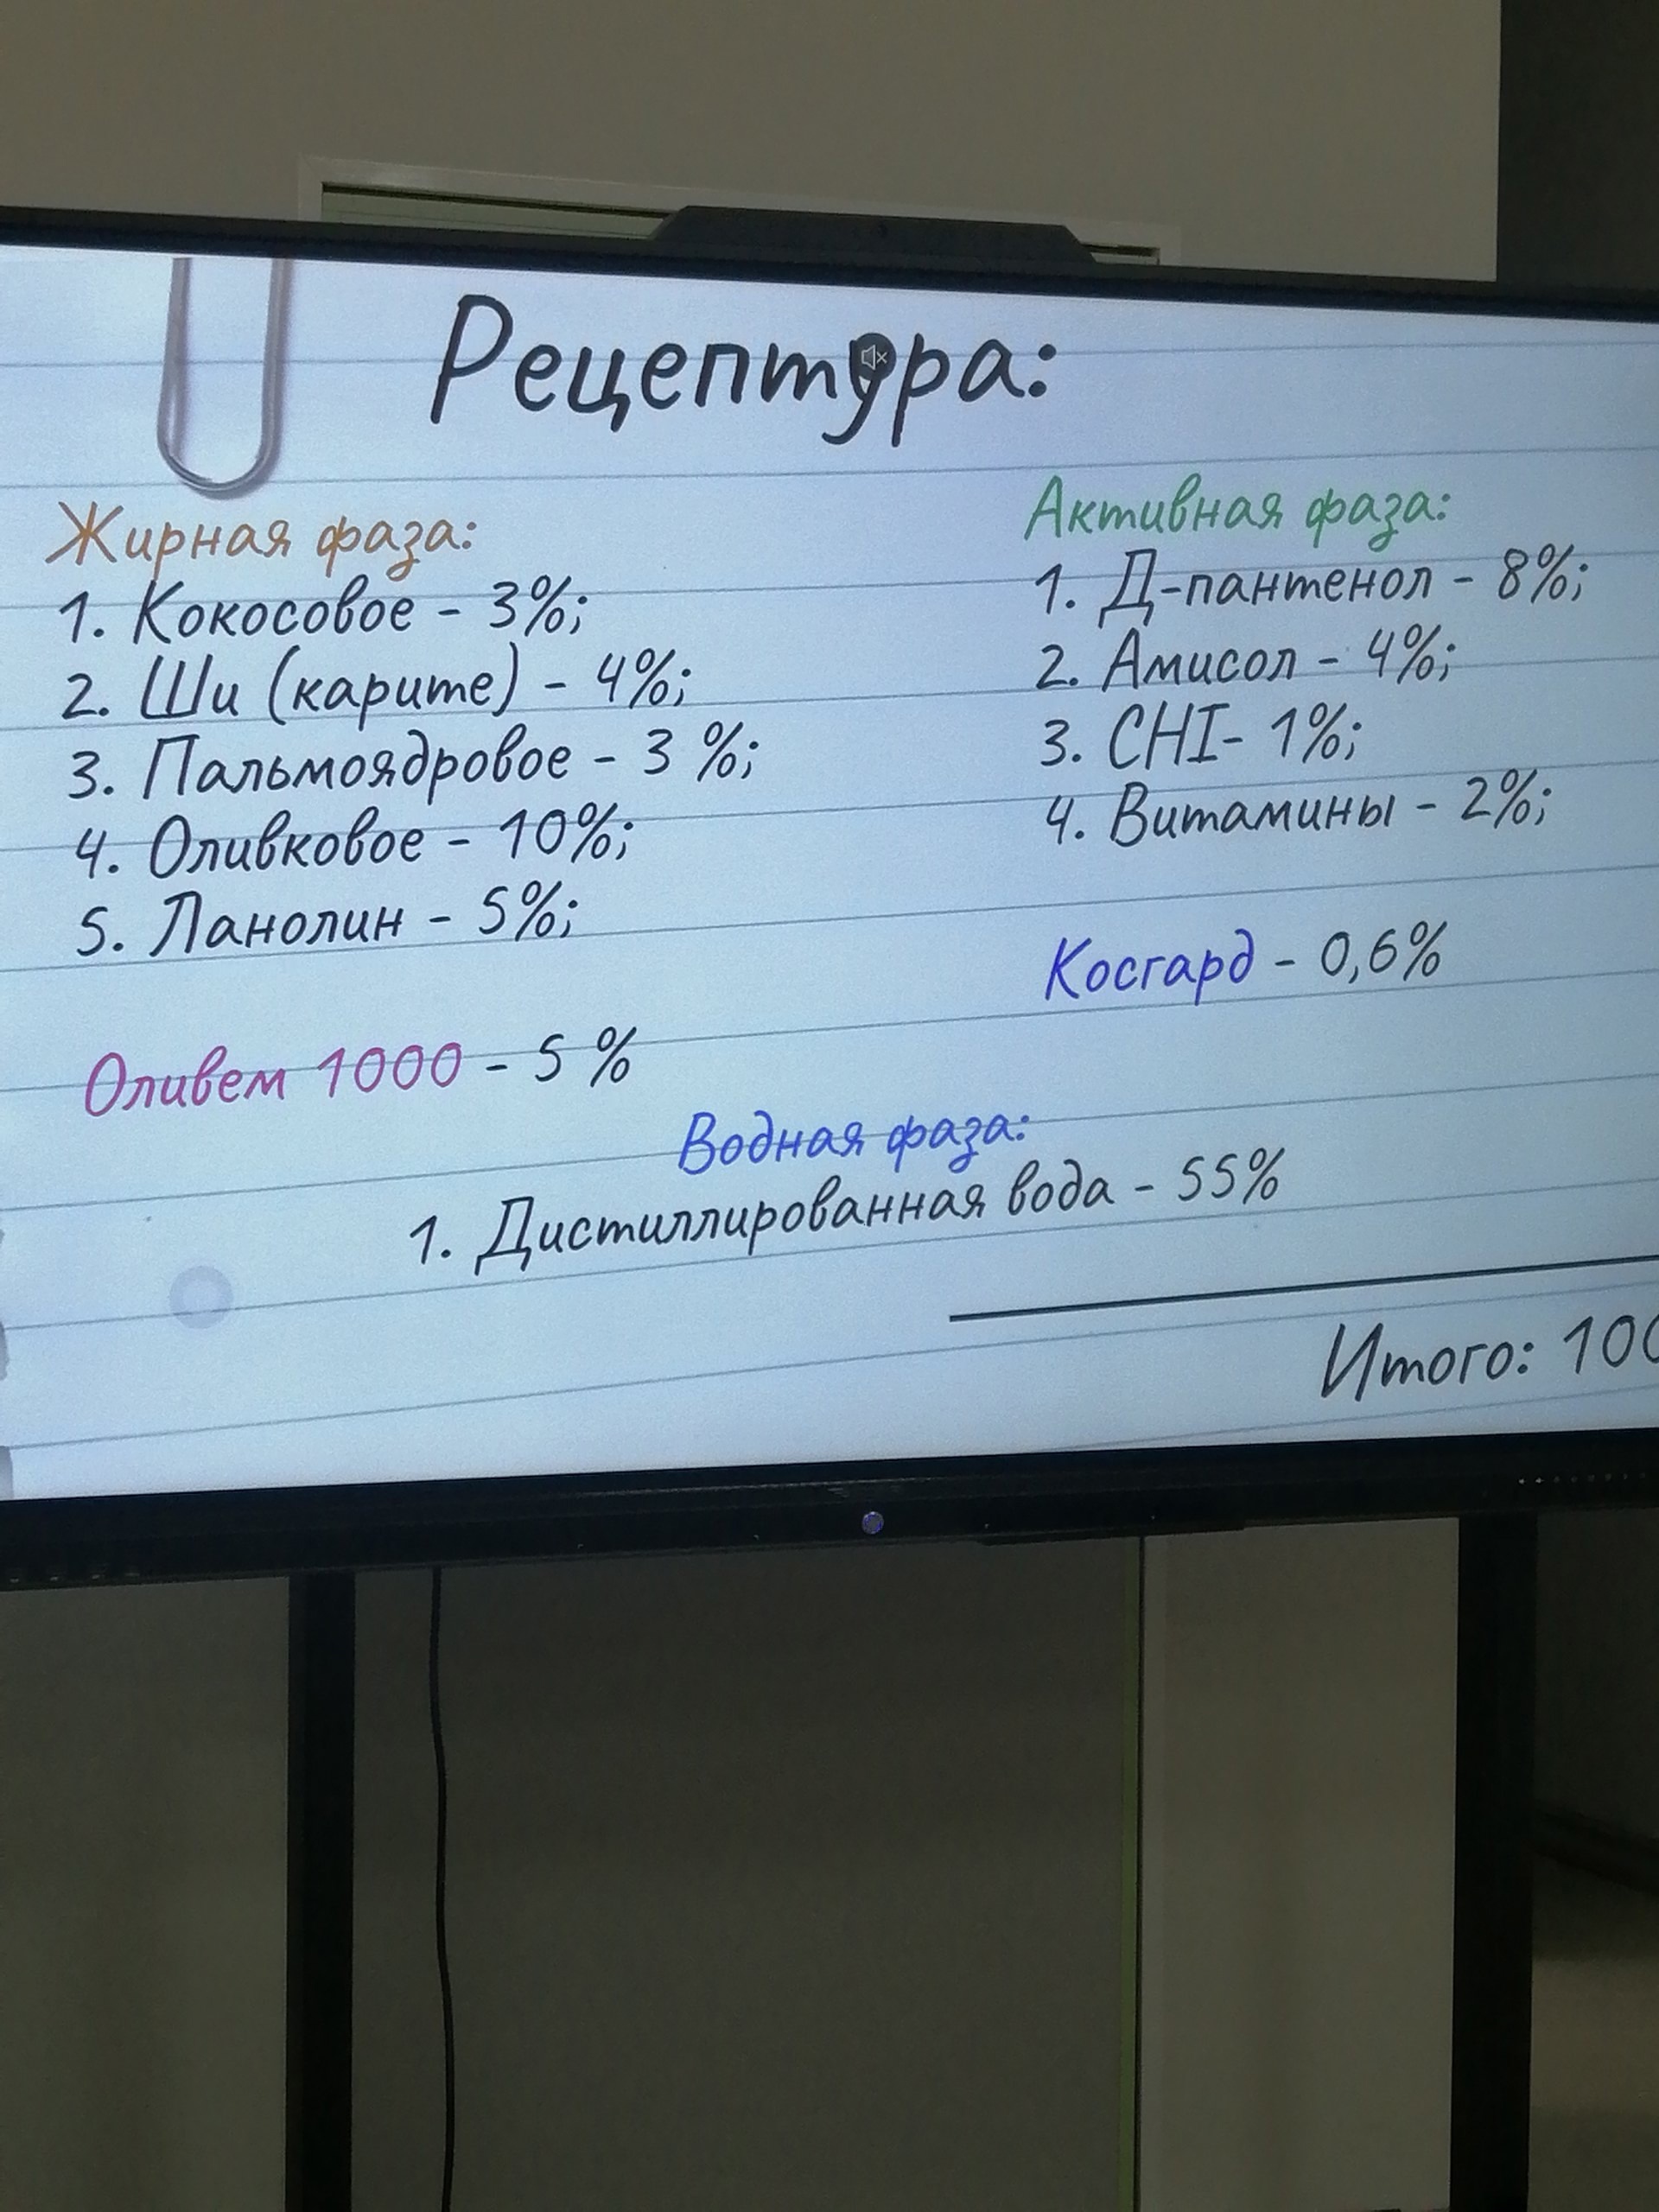 Рецептура:
Жирная фаза:
1. Кокосовое - 3%;
2. Ши (карите) - 4%;
3. Пальмоядровое - 3 %;
4. Оливковое - 10%;
5. Ланолин - 5%;
Оливем 1000 - 5 %
Активная фаза:
1. Д-пантенол - 8%;
2. Амисол - 4%;
3. CHI- 1%;
4. Витамины - 2%;
Косгард - 0,6%
Водная фаза:
1. Дистиллированная вода - 55%
Итого: 100